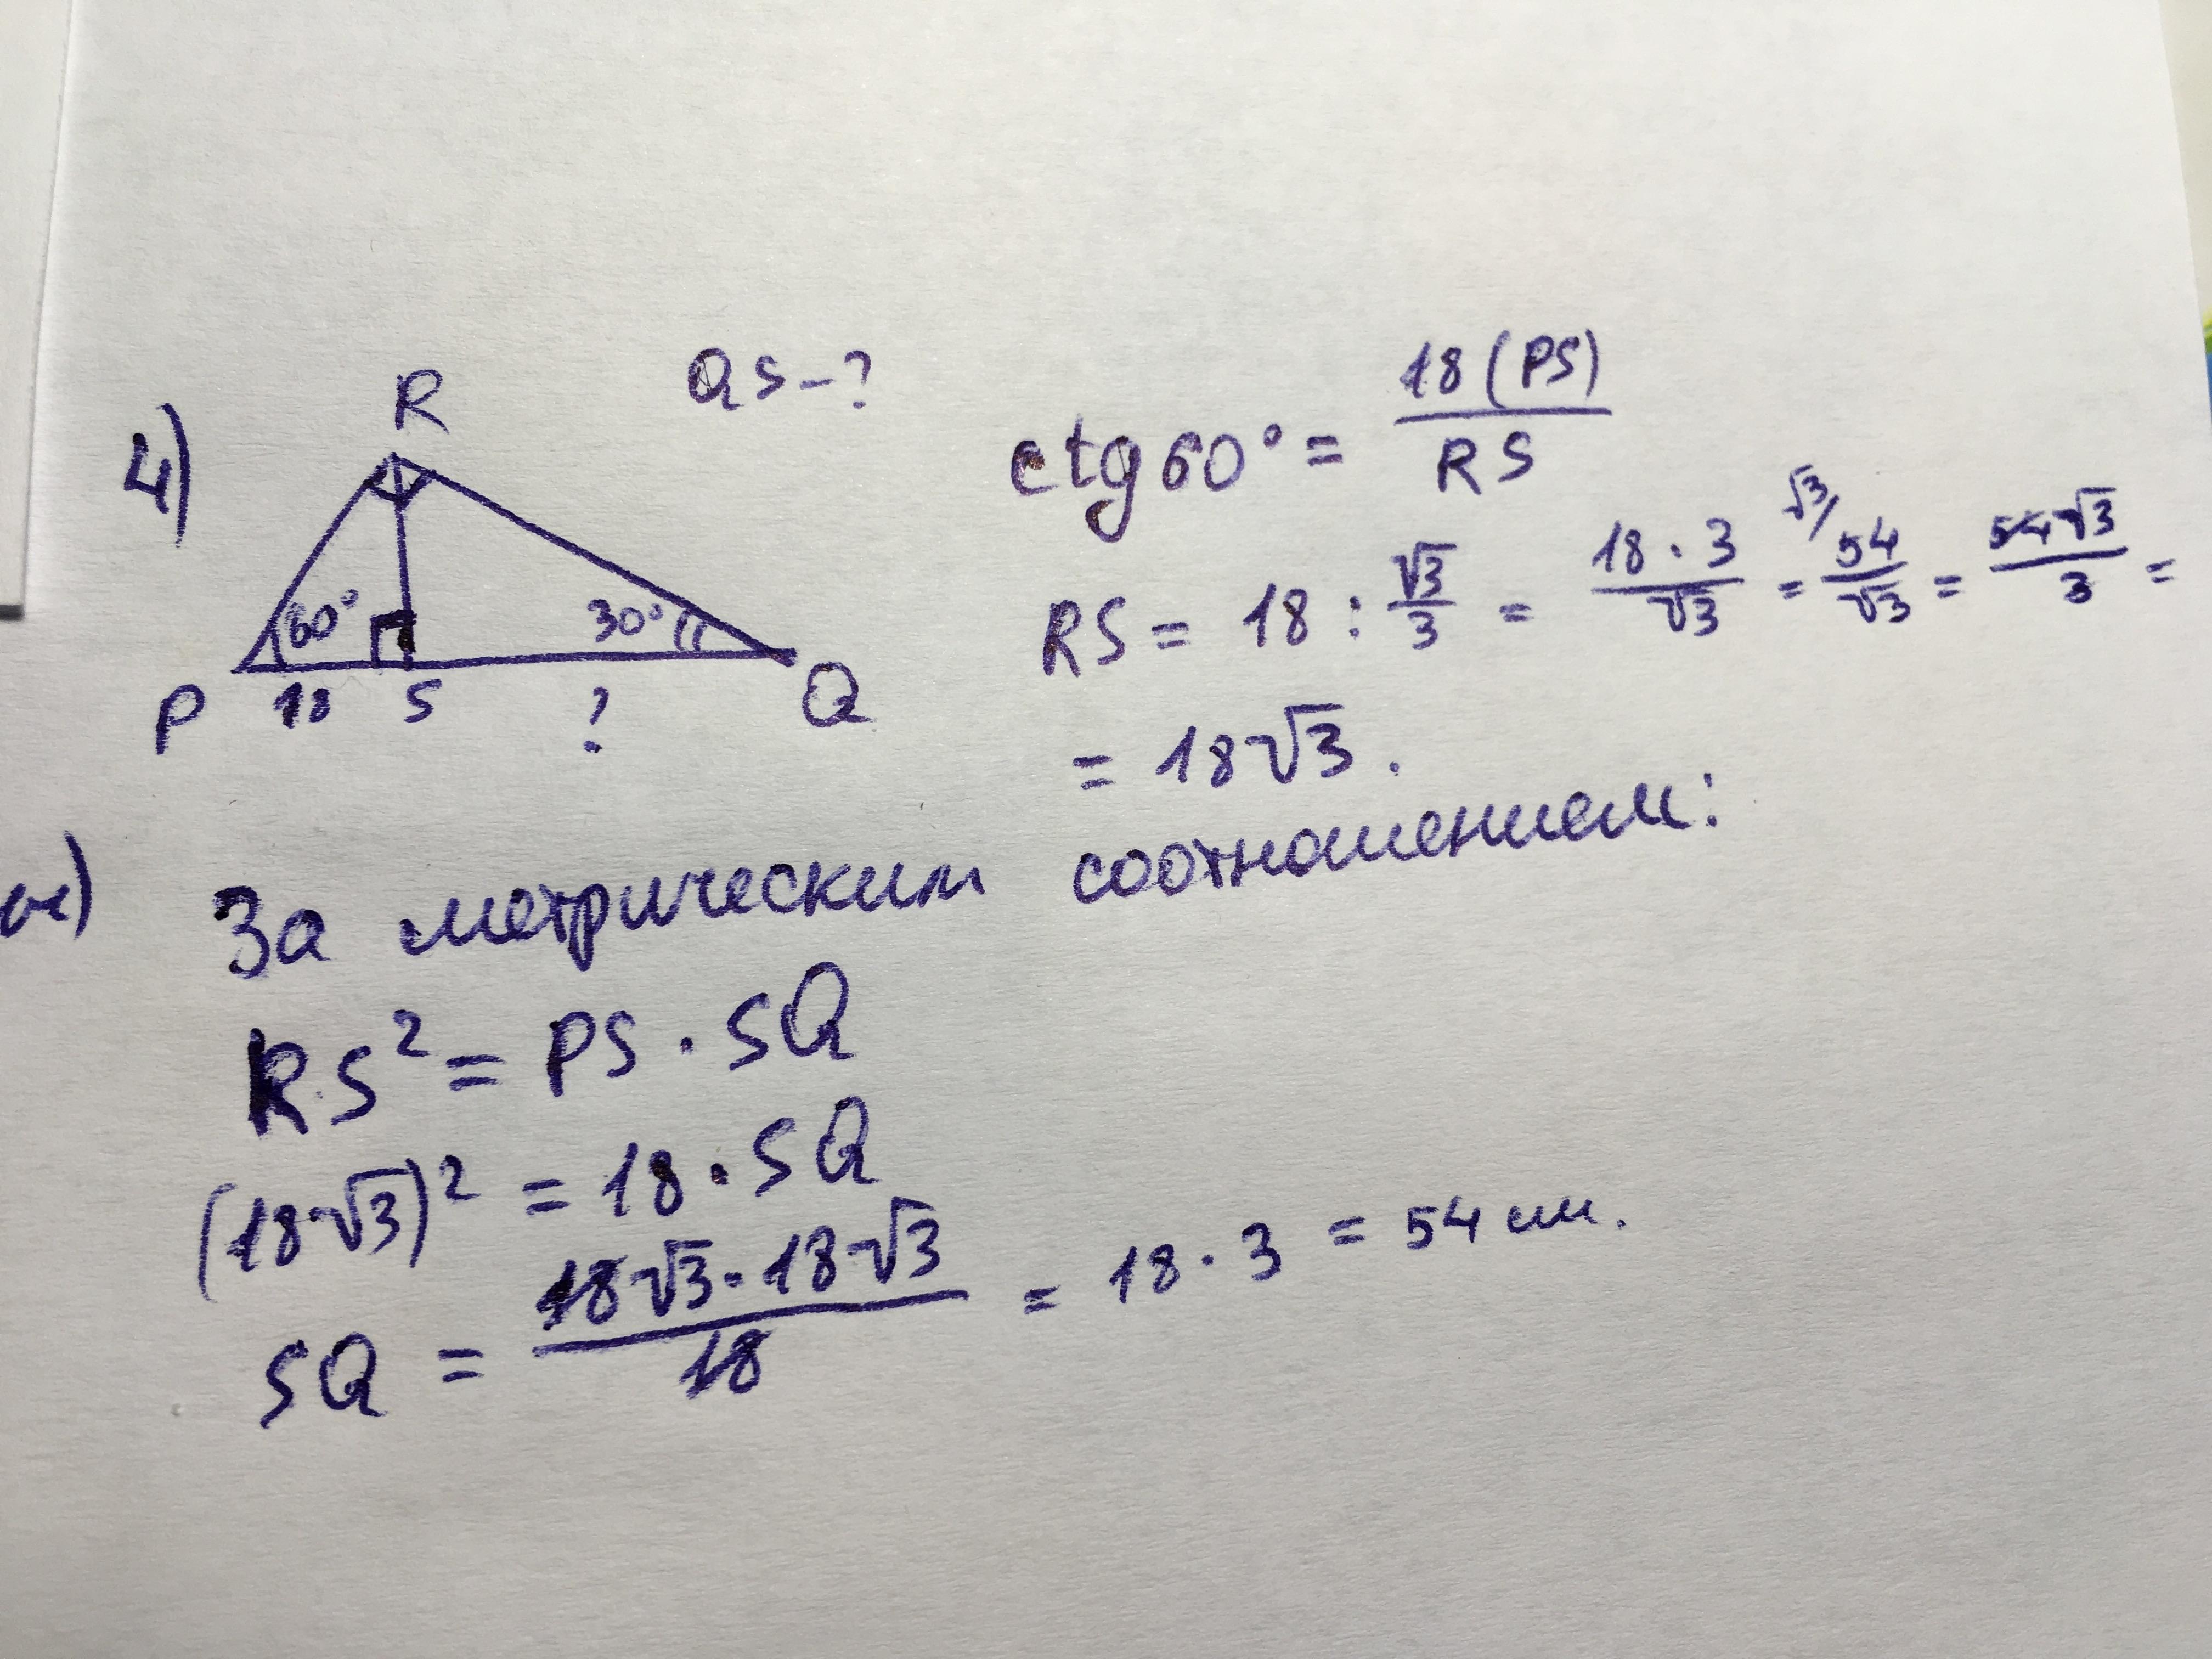 4)
R
QS-?
60°
30°
P 18 S ? Q
ctg60° = 18(PS)/RS
RS = 18 : √3/3 = 18·3/√3 = √3/ 54/√3 = 54√3/3 =
= 18√3.
За метрическим соотношением:
RS² = PS · SQ
(18√3)² = 18 · SQ
SQ = 18√3·18√3/18 = 18·3 = 54 см.